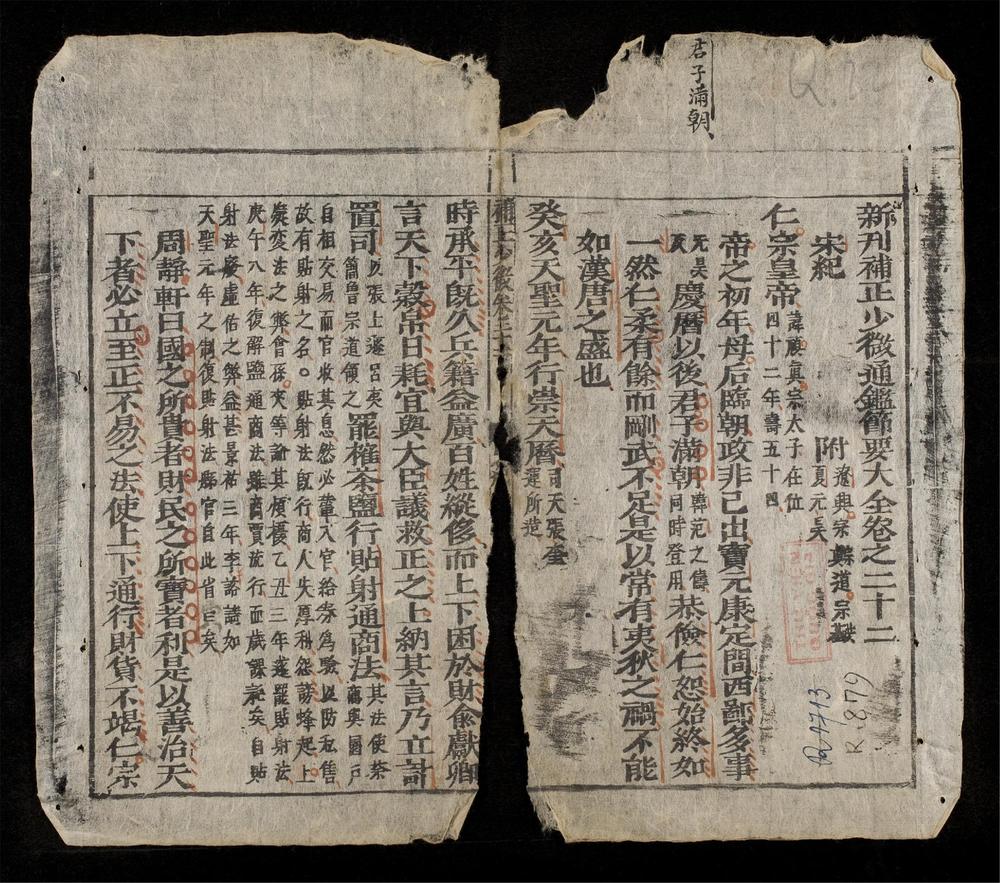 君子滿朝
新刊補正少微通鑑節要大全卷之二十二
宋紀 附 遼興宗 道宗 夏元昊
仁宗皇帝 諱禎真宗太子在位四十二年壽五十四
帝之初年母后臨朝政非己出寶元康定間西鄙多事
元昊 慶曆以後君子滿朝 韓范之儔同時登用 恭儉仁恕始終如
一然仁柔有餘而剛武不足是以常有夷狄之禍不能
如漢唐之盛也
癸亥天聖元年行崇天曆 司天張奎運所造
時承平旣久兵籍益廣百姓縱侈而上下困於財俞獻卿
言天下穀帛日耗宜與大臣議救正之上納其言乃立計
置司 以張士遜呂夷簡魯宗道領之 罷榷茶鹽行貼射通商法 其法使茶商與園戶
自相交易而官收其息然必輦入官給券爲驗以防私售
故有貼射之名。貼射法旣行商人失厚利怨謗蜂起上
疑變法之弊會孫奭等論其煩擾乙丑三年遂罷貼射法
庚午八年復解鹽通商法雖商賈流行而歲課耗矣自貼
射法廢虛估之弊益甚景祐三年李諮請如
天聖元年之制復貼射法縣官自此省 矣
周靜軒曰國之所貴者財民之所寶者利是以善治天
下者必立至正不易之法使上下通行財貨不竭仁宗
R.879